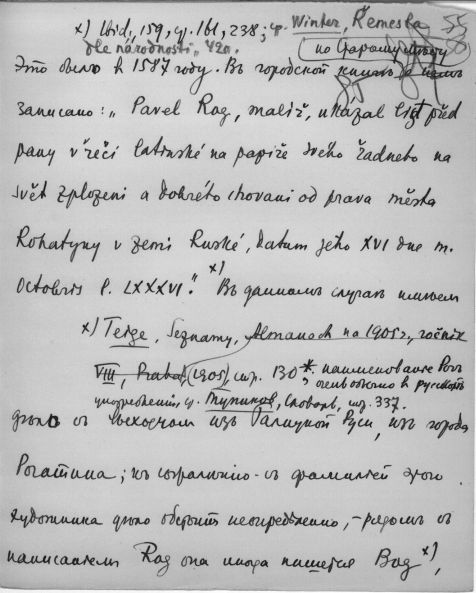 x) Ibid, 159, ср. 161, 238; ср. Winter, Řemesla
dle národnosti, 420.
(по старому стилю
Это было въ 1587 году. Въ городской
записано: „Pavel Rog, maliř, ukazal list před
pany v řeči latinské na papiře svého řadneho na
svět zplozeni a dobrého chovani od prava města
Rohatyny v zemi Ruské, datum jeho XVI dne m.
Octobris l. LXXXVI." x) Въ данномъ случаѣ имѣемъ
x) Teige, Seznamy, Almanach na 1905 r., ročnik
VIII, Praha, (1905), стр. 130*; наименование Рогъ
очень обычно в русскомъ
употребленіи, ср. Тупиковъ, Словарь, стр. 337.
дѣло съ выходцемъ изъ Галицкой Руси, изъ города
Рогатина; къ сожалѣнію - съ фамиліей этого
художника дѣло обстоитъ неопредѣленно, - рядомъ съ
написаніемъ Rog она иногда пишется Bog x),